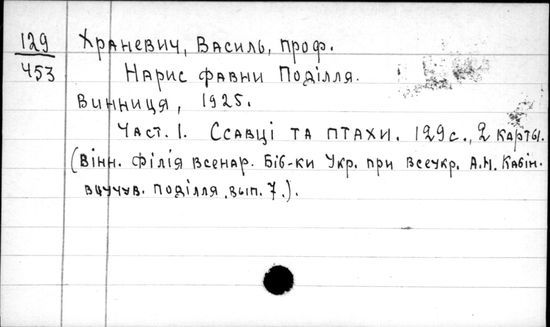 129 Храневич, Василь, проф.
453 Нарис фавни Поділля.
Винниця, 1925.
Част. 1. Ссавці та птахи. 129 с., 2 карты.
(Вінн. філія всенар. Біб-ки Укр. при Всеукр. А.Н. Кабін.
виучув. поділля. вып. 7.).